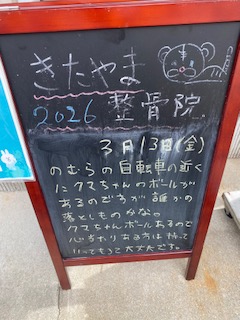 きたやま
2026 整骨院
3月13日(金)
のむらの自転車の近く
にクスちゃんのボールが
あるのですが誰かの
落としものかな。
クスちゃんボールあるので
心当たりある方は持って
いってもろて大丈夫です。